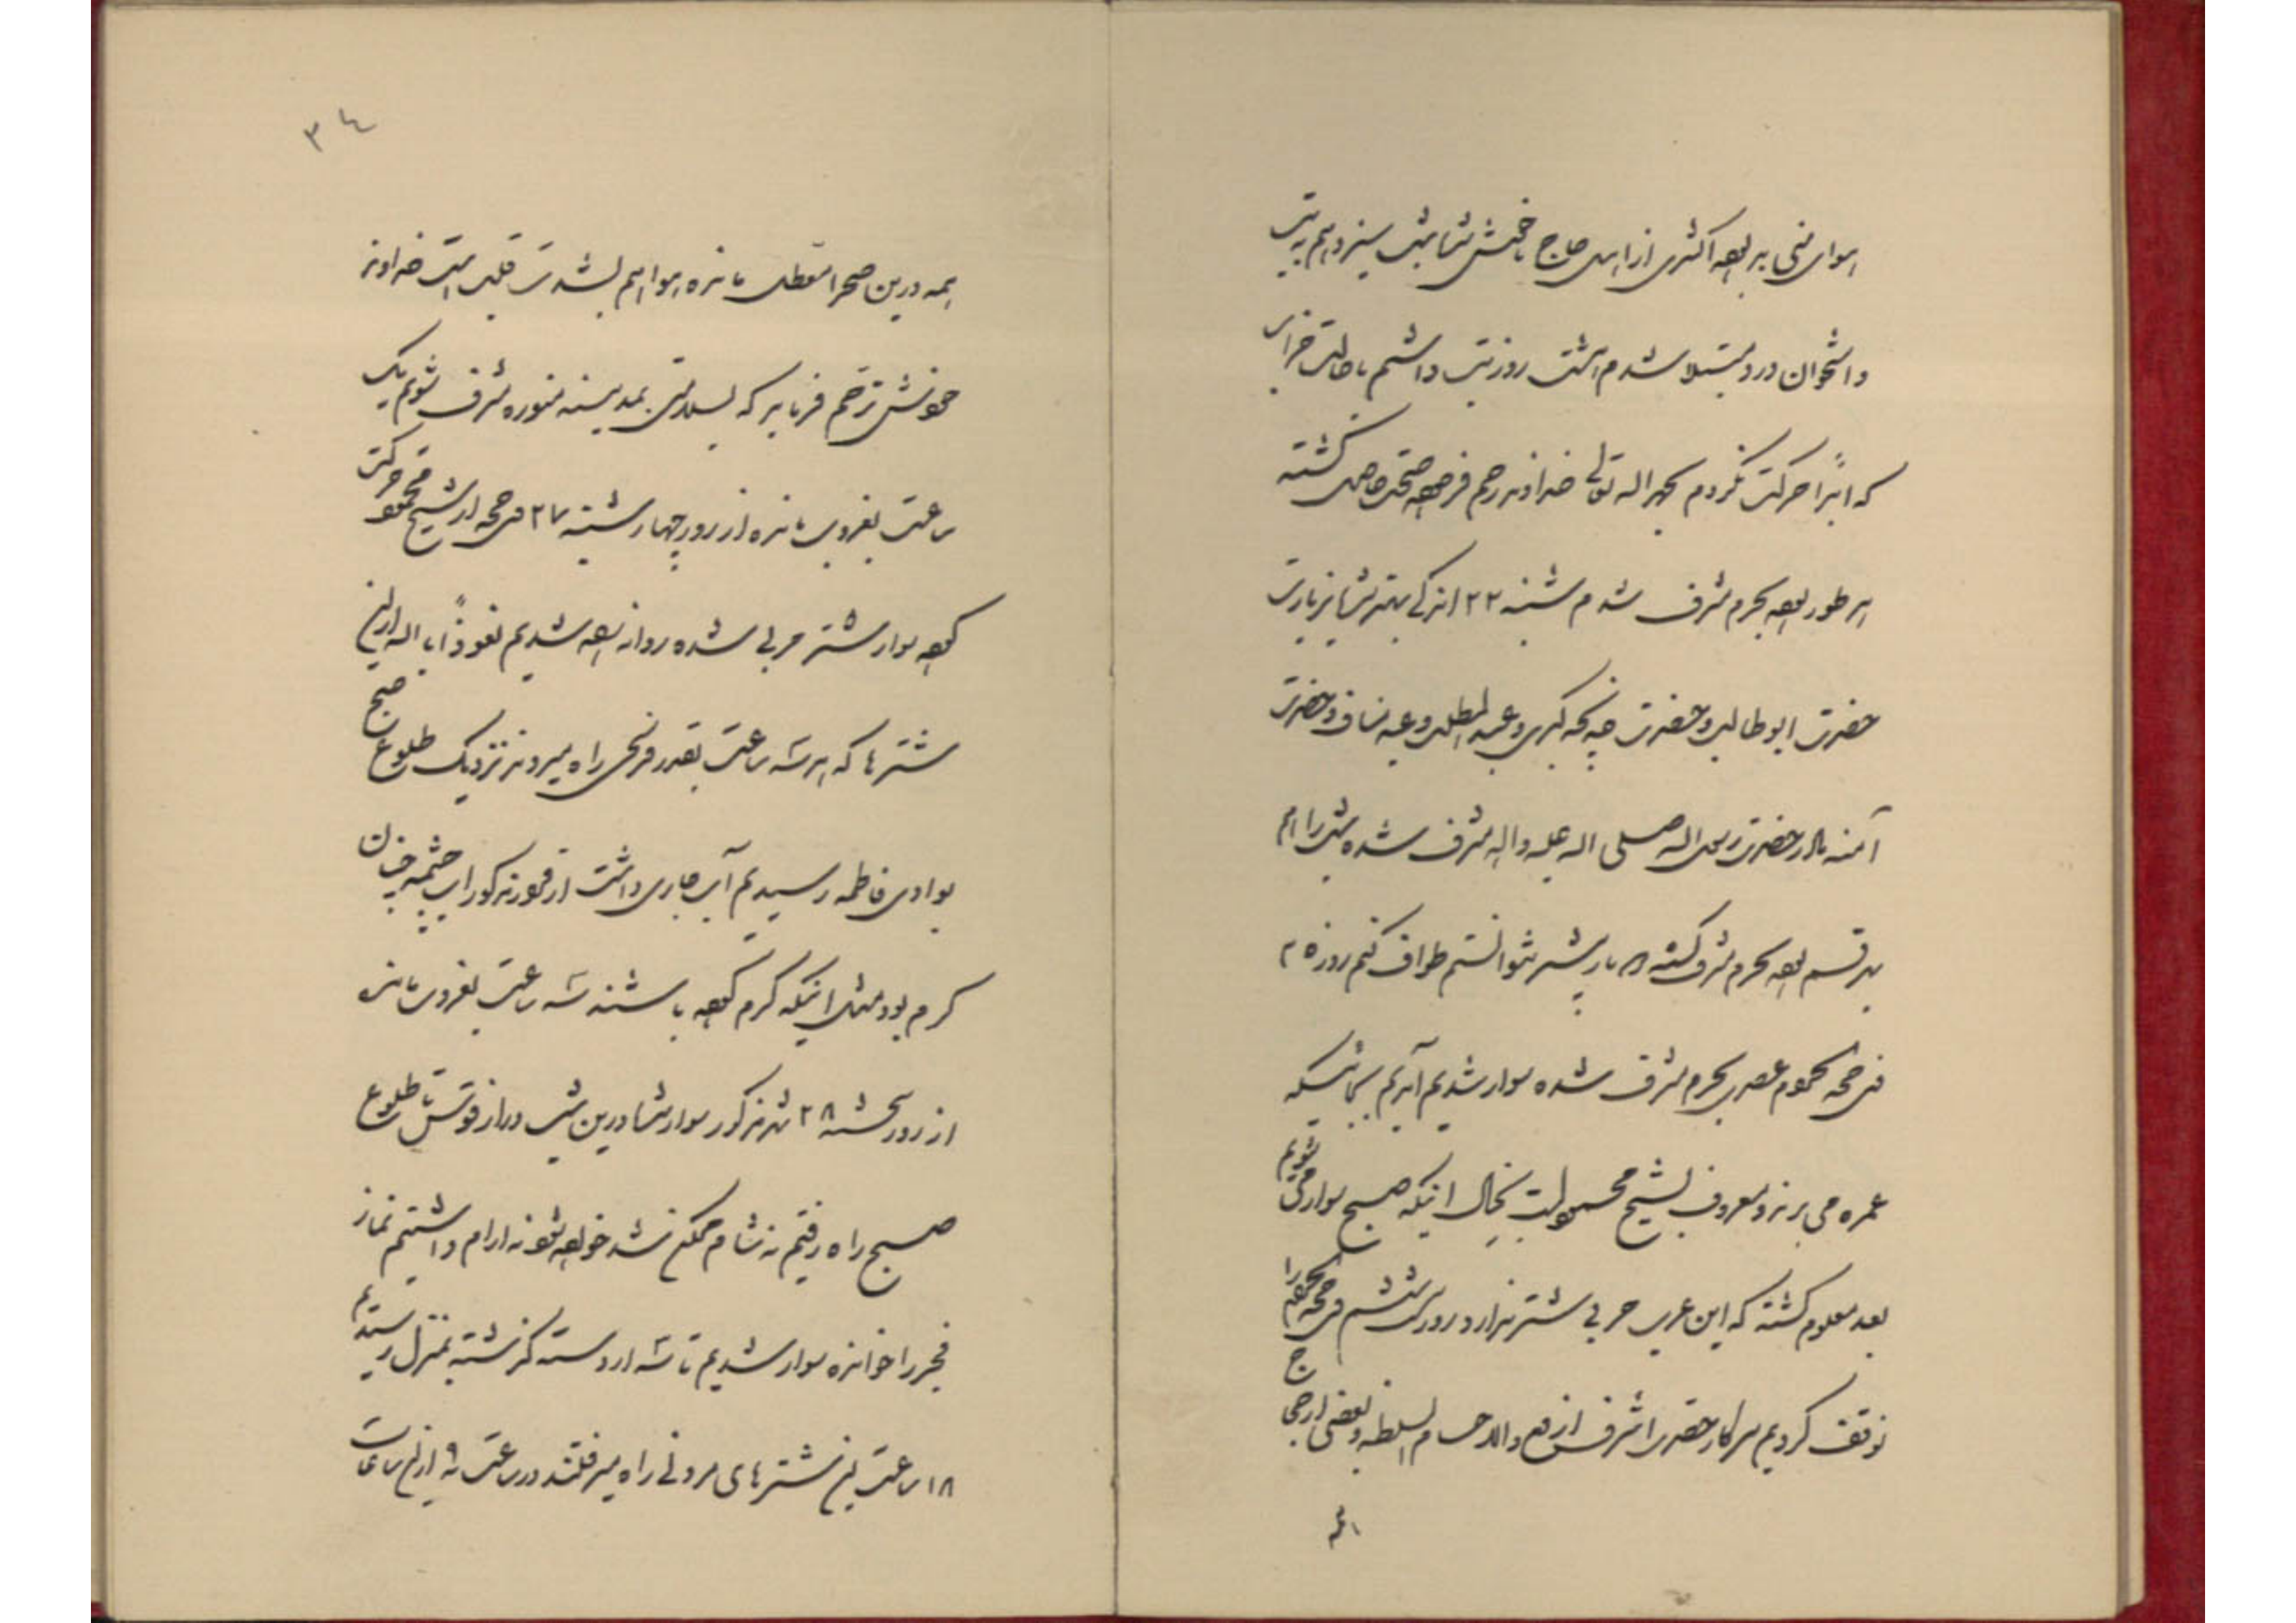 هوای منی بد بوده اکثری از اهل حاج ناخوش شدند شب سیزدهم به تب
و استخوان درد مبتلا شدم هشت روز تب داشتم با حالت خرابی
که ابداً حرکت نکردم بحمدالله تعالی خداوند رحم فرموده صحت حاصل گشته
هر طور بوده بحرم مشرف شدم شنبه ۲۲ اندکی بهتر شد بزیارت
حضرت ابوطالب و حضرت خدیجه کبری و عبدالمطلب و عبد مناف و حضرت
آمنه مادر حضرت رسول الله صلی الله علیه و اله مشرف شده شب را هم
بهر قسم بوده بحرم مشرف گشته بیشتر نتوانستم طواف کنم روز
ذی حجه عصر بحرم مشرف شده سوار شدیم آمدیم بجائیکه
عمره می برند و معروف بشیخ محمود است بخیال اینکه صبح سوار می شویم
بعد معلوم گشته که این عرب حربی شتر ندارد روز ذی حجه را
توقف کردیم سرکار حضرت اشرف والا حسام السلطنه و بعضی از حجاج
همه
۳۴
همه درین صحرا معطل مانده هوا هم بشدت خداوند
خودش ترحم فرماید که بسلامتی بمدینه منوره مشرف شویم یک
ساعت بغروب مانده از روز چهارشنبه ۲۷ ذی حجه از شیخ محمود حرکت
کرده سوار شتر حربی شده روانه شدیم نعوذاً بالله ازین
شترها که هر سه ساعت بقدر فرسخی راه میروند نزدیک طلوع صبح
بوادی فاطمه رسیدیم آب جاری داشت آب چشمه چنان
گرم بود مثل اینکه گرم کرده باشند سه ساعت بغروب مانده
از روز پنجشنبه ۲۸ شهر مذکور سوار شده درین شب تا طلوع
صبح راه رفتیم نه شام ممکن شد خورده شود نه آرام داشتیم نماز
فجر را خوانده سوار شدیم تا سه از دسته گذشته بمنزل رسیدیم
۱۸ ساعت این شترهای مردنی راه میرفتند در ساعت ۹ ازین ساعات